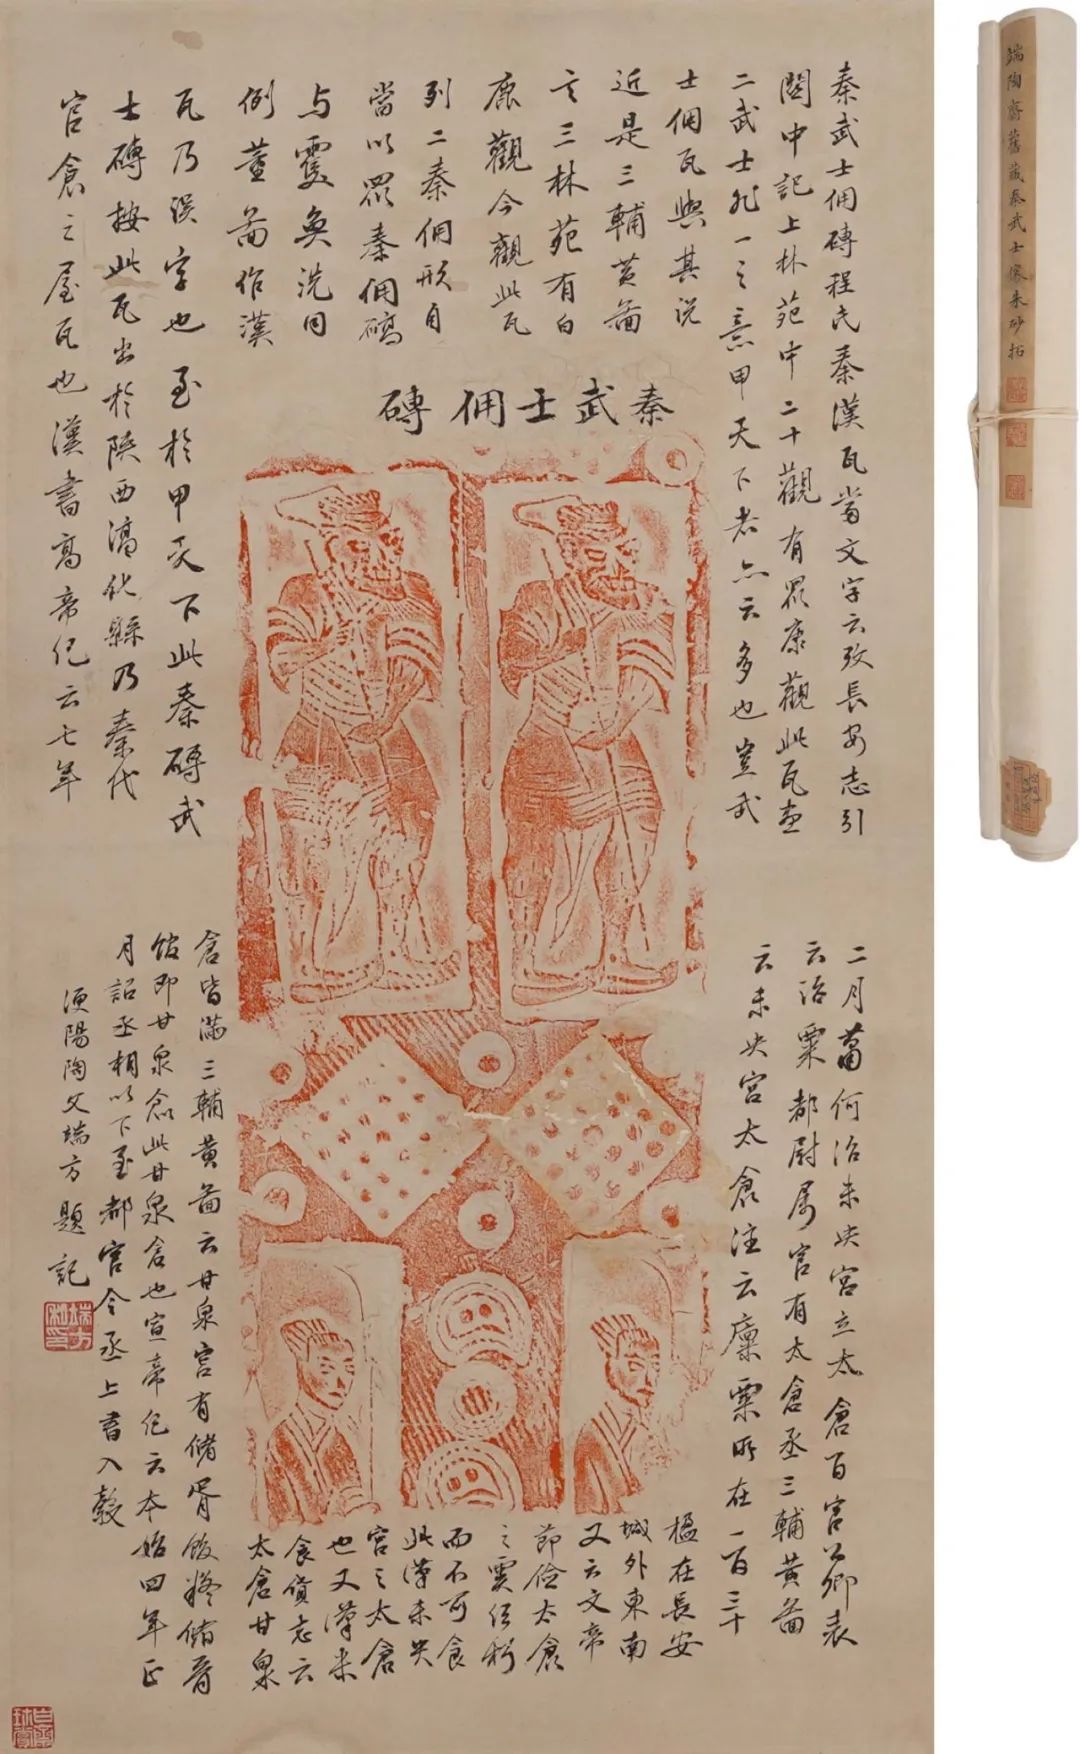 秦武士佣磚程氏秦漢瓦當文字云攷長安志引
關中記上林苑中二十觀有眾康觀此瓦畫
二武士非一之意甲天下者亦云多也豈武
士佣瓦與其說
近是三輔黃圖
言三林苑有白
鹿觀今觀此瓦
列二秦佣形自
當以眾秦佣磚
与雙魚洗同
例黃圖作漢
瓦乃誤字也至於甲天下此秦磚武
士磚按此瓦出於陝西淳化縣乃秦代
官倉之屋瓦也漢書高帝紀云七年
秦武士佣磚
二月蕭何治未央宮立太倉百官公卿表
云治粟都尉屬官有太倉丞三輔黃圖
云未央宮太倉注云廩粟所在一百三十
楹在長安
城外東南
又云文帝
節儉太倉
之粟紅朽
而不可食
此漢未央
宮之太倉
也又漢書
食貨志云
太倉甘泉
倉皆滿三輔黃圖云甘泉宮有儲胥
館即甘泉倉此甘泉倉也宣帝紀云本始四年正
月詔丞相以下至都官令丞上書入穀
浭陽陶父端方題記
端方
端陶齋舊藏秦武士像朱砂拓